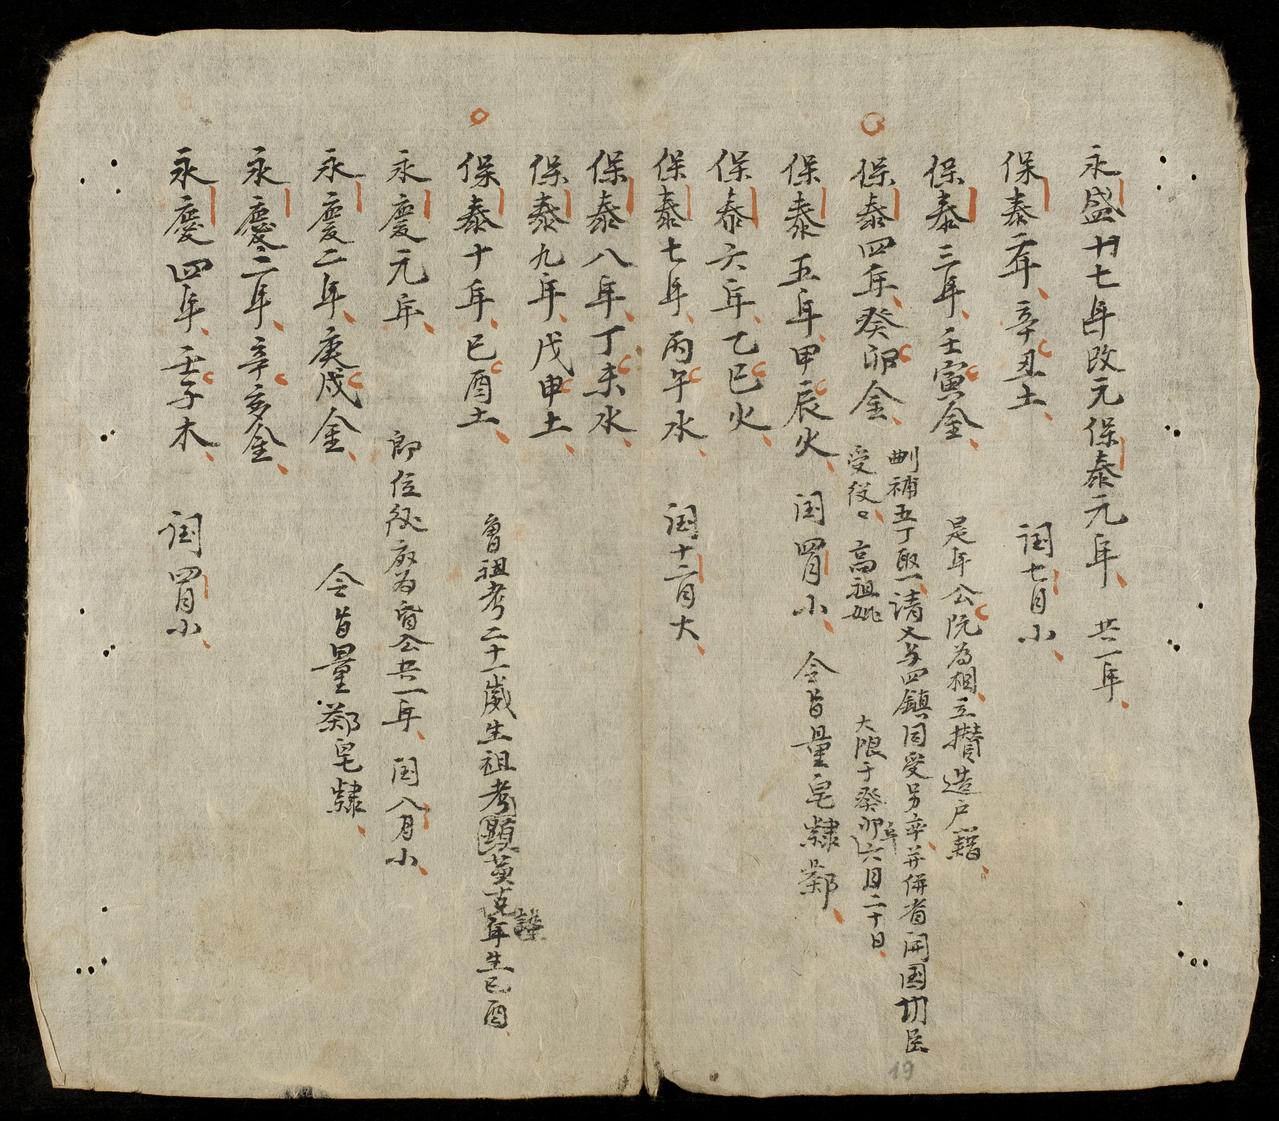 永盛十七年改元保泰元年 廿一年
保泰二年辛丑土 閏七月小
保泰三年壬寅金 是年公阮為相立攢造戶籍
保泰四年癸卯金 刪補五丁取一請 四鎮同受 并併省開國功臣
受從 高祖妣 大限于癸卯年六月二十日
保泰五年甲辰火 閏四月小 令旨量皂隸鄉
保泰六年乙巳火
保泰七年丙午水 閏十二月大
保泰八年丁未水
保泰九年戊申土
保泰十年己酉土 曾祖考二十一歲生祖考顯 年生己酉
永慶元年 即位 廢為昏公廿一年 閏八月小
永慶二年庚戌金 令旨量鄉皂隸
永慶三年辛亥金
永慶四年壬子木 閏四月小
19